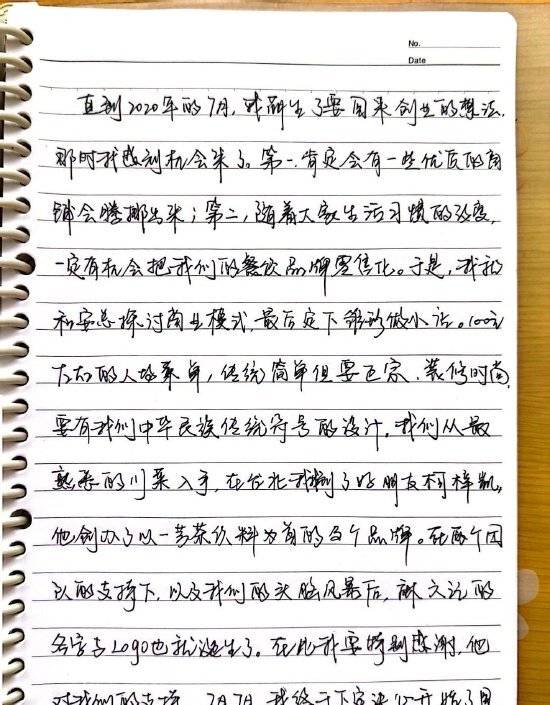 No.
Date
直到2020年的7月,我萌生了要回来创业的想法.
那时我感到机会来了。第一,肯定会有一些优质的商
铺会腾挪出来;第二,随着大家生活习惯的改变,
一定有机会把我们的餐饮品牌零售化。于是,我就
和安总探讨商业模式,最后定下能够做小店。100元
左右的人均菜单,传统简单但要正宗、装修时尚,
要有我们中华民族传统符号的设计。我们从最
熟悉的川菜入手,在台北我找到了好朋友柯梓凯,
他创办了以一芳茶饮料为首的多个品牌。在两个团
队的支持下,以及我们的头脑风暴后,麻六记的
名字与Logo也就诞生了。在此我要特别感谢,他
对我们的支持。7月7日,我终于下定决心开始了